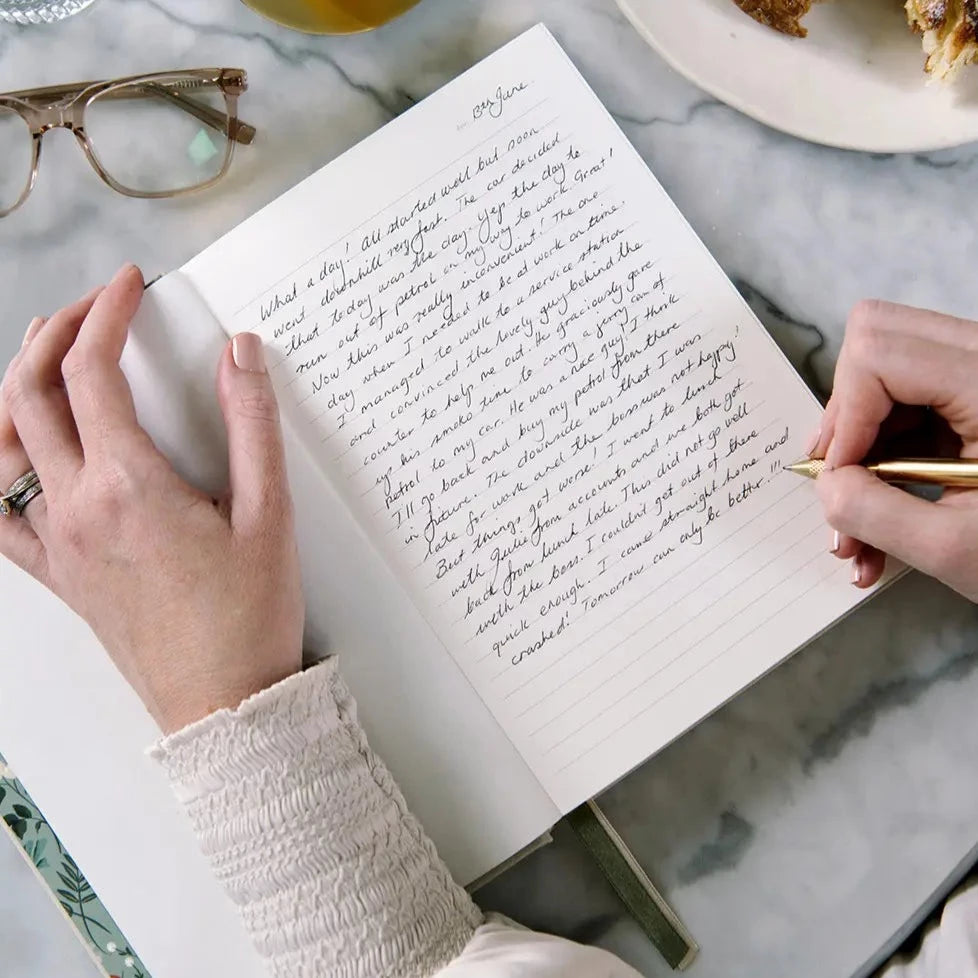 13th June
What a day! All started well but soon
went downhill very fast. The car decided
that today was the day. Yep the day to
run out of petrol on my way to work. Great!
Now this was really inconvenient! The one
day when I needed to be at work on time.
I managed to walk to a service station
and convinced the lovely guy behind the
counter to help me out. He graciously gave
up his smoko time to carry a jerry can of
petrol to my car. He was a nice guy! I think
I'll go back and buy my petrol from there
in future. The downside was that I was
late for work and the boss was not happy!
But things got worse! I went to lunch
with Julie from accounts and we both got
back from lunch late. This did not go well
with the boss. I couldn't get out of there
quick enough. I came straight home and
crashed! Tomorrow can only be better...!!!